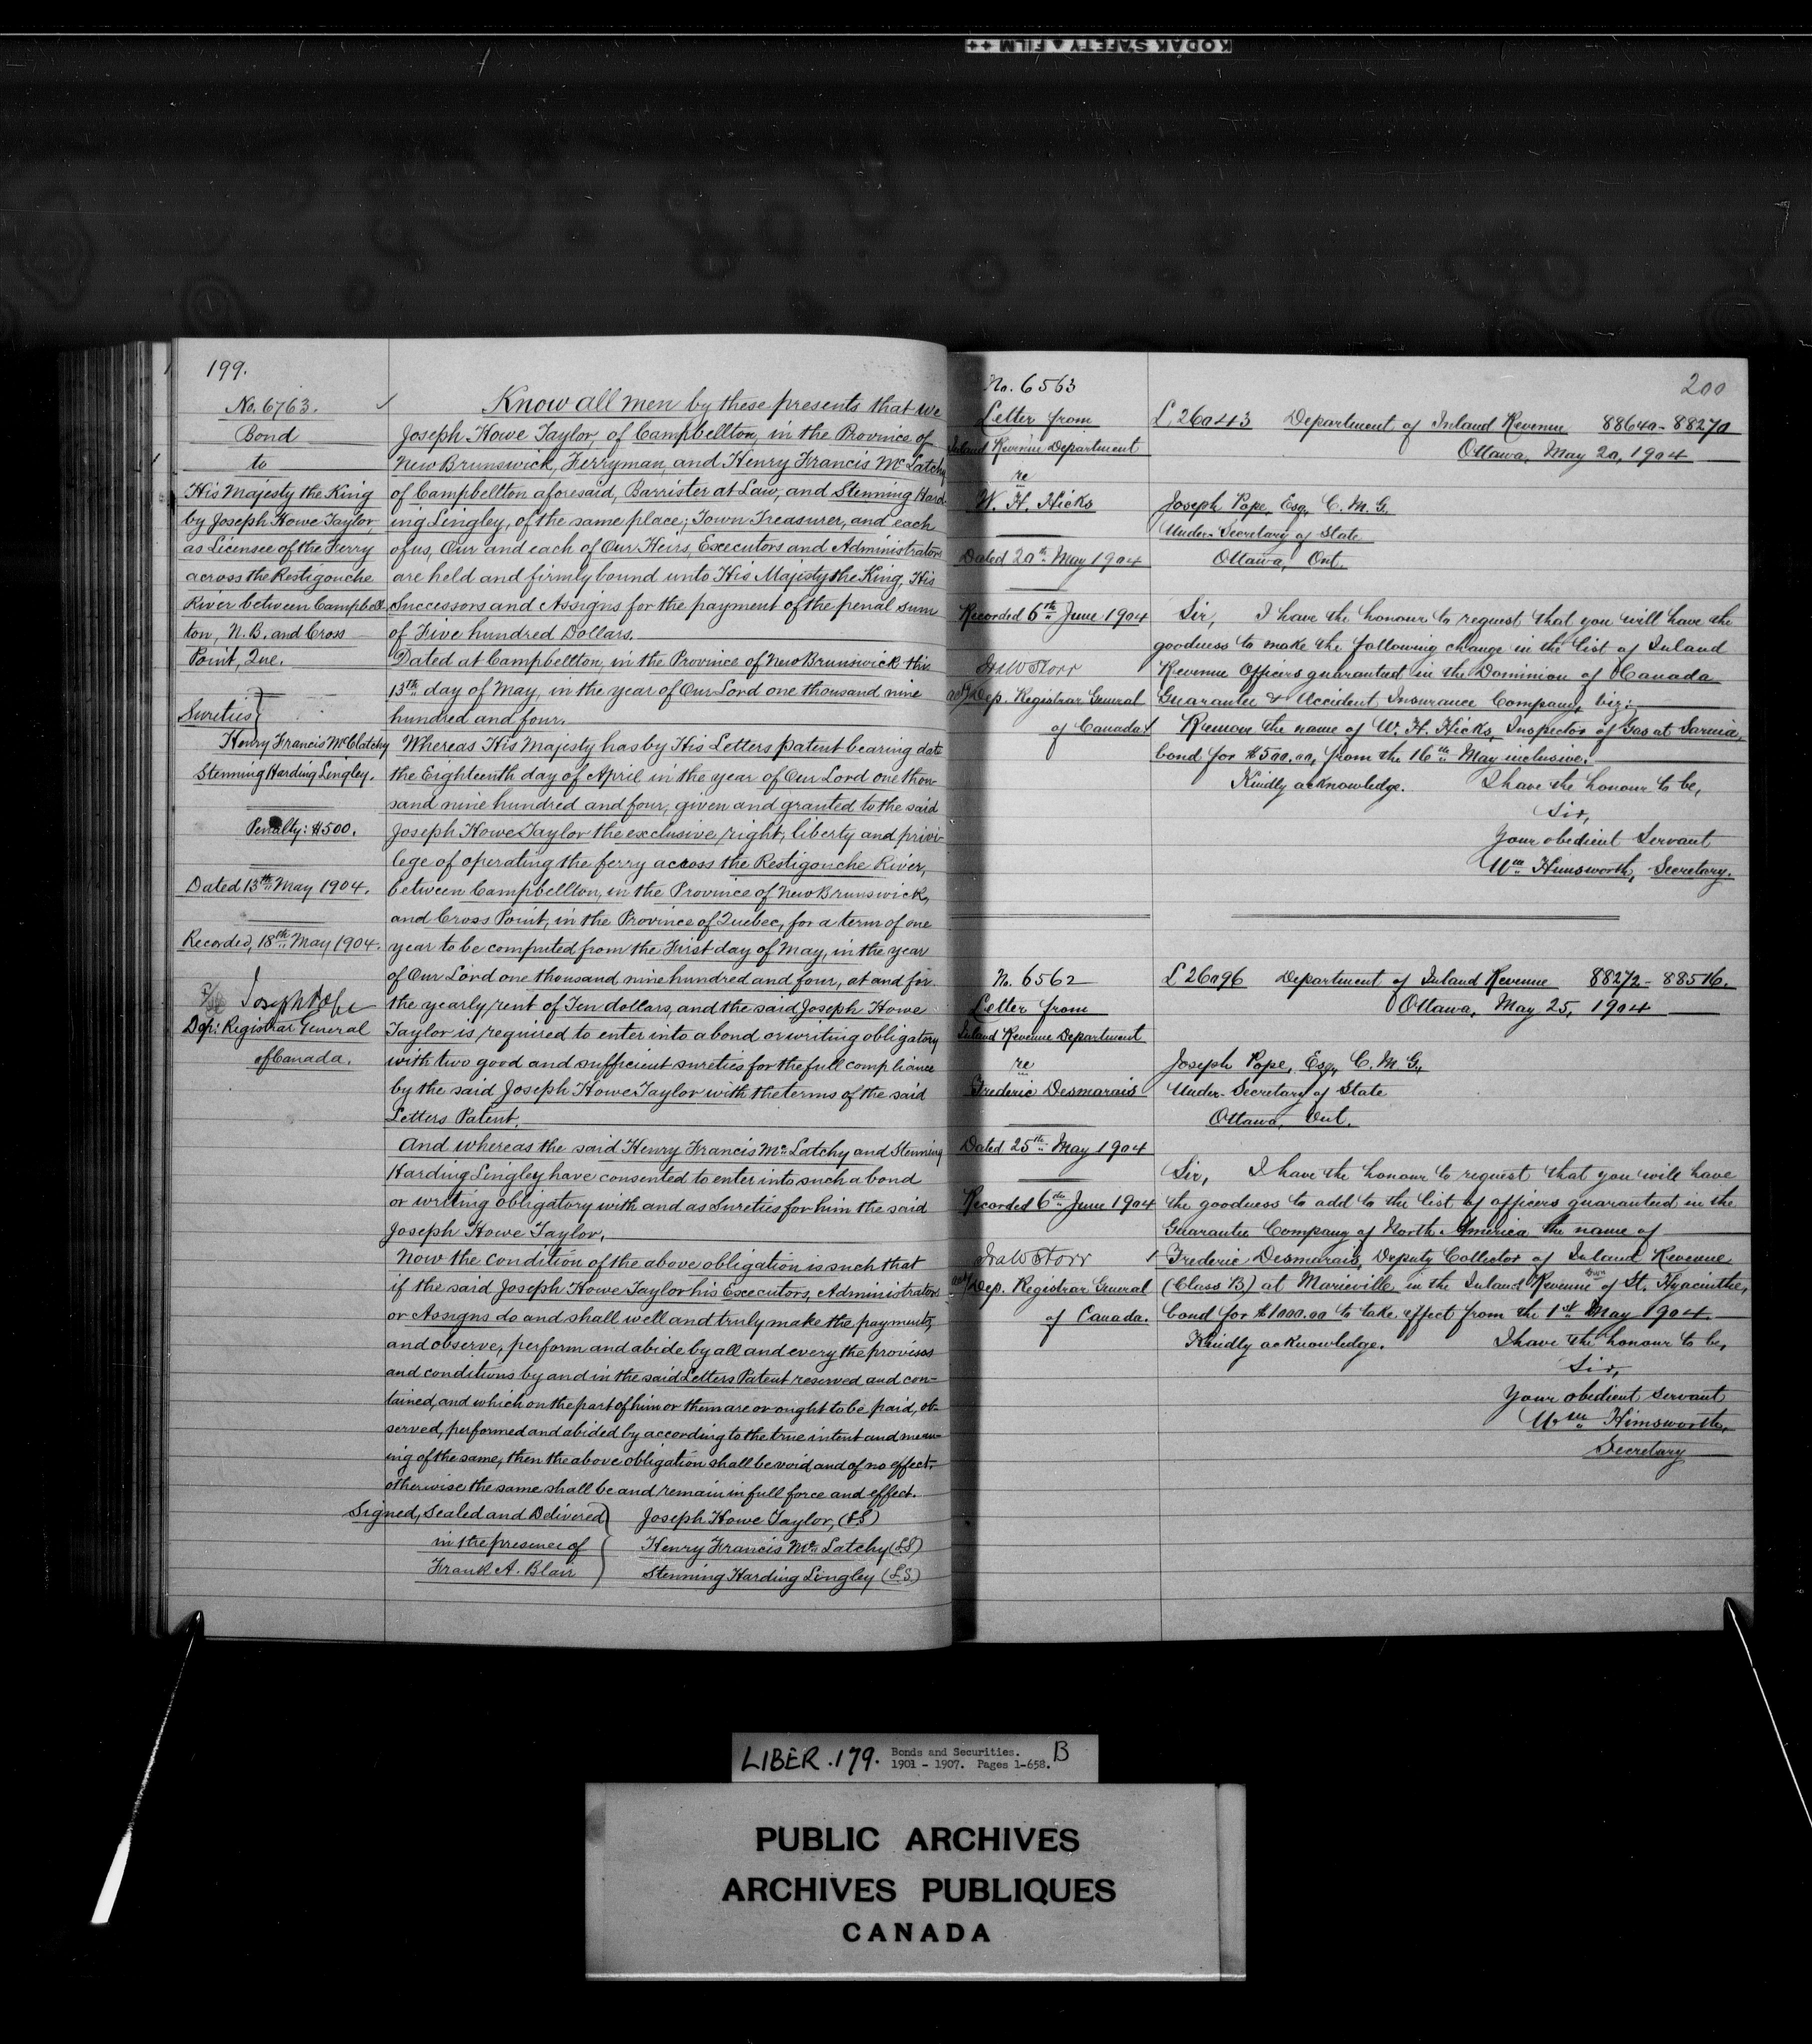 KODAK SAFETY FILM ++
199.
No. 6763.
Bond
to
His Majesty the King
by Joseph Howe Taylor,
as Licensee of the Ferry
across the Restigouche
River between Campbell-
ton, N.B. and Cross
Point, Que.
Sureties
Henry Francis McClatchy
Stenning Harding Lingley.
Penalty: $500.
Dated 13th May 1904.
Recorded, 18th May, 1904.
Joseph Pope
Dep: Registrar General
of Canada.
Know all men by these presents that we
Joseph Howe Taylor, of Campbellton, in the Province of
New Brunswick, Ferryman, and Henry Francis McLatchy
of Campbellton aforesaid, Barrister at Law, and Stenning Hard-
ing Lingley, of the same place, Town Treasurer, and each
of us, Our and each of Our Heirs, Executors and Administrators
are held and firmly bound unto His Majesty the King, His
Successors and Assigns for the payment of the penal sum
of Five hundred Dollars.
Dated at Campbellton, in the Province of New Brunswick this
13th day of May, in the year of Our Lord one thousand nine
hundred and four.
Whereas His Majesty has by His Letters patent bearing date
the Eighteenth day of April in the year of Our Lord one thou-
sand nine hundred and four, given and granted to the said
Joseph Howe Taylor the exclusive right, liberty and privi-
lege of operating the ferry across the Restigouche River,
between Campbellton, in the Province of New Brunswick,
and Cross Point, in the Province of Quebec, for a term of one
year to be computed from the First day of May, in the year
of Our Lord one thousand nine hundred and four, at and for
the yearly rent of Ten dollars, and the said Joseph Howe
Taylor is required to enter into a bond or writing obligatory
with two good and sufficient sureties for the full compliance
by the said Joseph Howe Taylor with the terms of the said
Letters Patent.
And whereas the said Henry Francis McLatchy and Stenning
Harding Lingley have consented to enter into such a bond
or writing obligatory with and as Sureties for him the said
Joseph Howe Taylor,
Now the condition of the above obligation is such that
if the said Joseph Howe Taylor his Executors, Administrators
or Assigns do and shall well and truly make the payments,
and observe, perform and abide by all and every the provisos
and conditions by and in the said Letters Patent reserved and con-
tained, and which on the part of him or them are or ought to be paid, ob-
served, performed and abided by according to the true intent and mean-
ing of the same, then the above obligation shall be void and of no effect.
otherwise the same shall be and remain in full force and effect.
Signed, Sealed and Delivered
in the presence of
Frank A. Blair
Joseph Howe Taylor, (LS)
Henry Francis McLatchy (LS)
Stenning Harding Lingley (LS.)
200
No. 6563
Letter from
Inland Revenue Department
re
W. H. Hicks
Dated 20th May 1904
Recorded 6th June 1904
Ira W Storr
actg Dep. Registrar General
of Canada
L 26043 Department of Inland Revenue 88640-88270
Ottawa, May 20, 1904
Joseph Pope, Esq., C.M.G.
Under-Secretary of State
Ottawa, Ont.
Sir, I have the honour to request that you will have the
goodness to make the following change in the list of Inland
Revenue Officers guaranteed in the Dominion of Canada
Guarantee & Accident Insurance Company, viz:
Remove the name of W. H. Hicks, Inspector of Gas at Sarnia,
bond for $500.00, from the 16th May inclusive.
Kindly acknowledge. I have the honour to be,
Sir,
Your obedient Servant
Wm Himsworth, Secretary.
N. 6562
Letter from
Inland Revenue Department
re
Frederic Desmarais
Dated 25th May 1904
Recorded 6th June 1904
Ira W Storr
actg Dep. Registrar General
of Canada.
L 26096 Department of Inland Revenue 88272-88516.
Ottawa, May 25, 1904
Joseph Pope, Esq., C.M.G.,
Under-Secretary of State
Ottawa, Ont.
Sir, I have the honour to request that you will have
the goodness to add to the list of officers guaranteed in the
Guarantee Company of North America the name of
Frederic Desmarais, Deputy Collector of Inland Revenue
(Class B) at Marieville, in the Inland Revenue Divn of St. Hyacinthe,
bond for $1000.00 to take effect from the 1st May 1904.
Kindly acknowledge. I have the honour to be,
Sir,
Your obedient servant
Wm Himsworth,
Secretary
LIBER .179. Bonds and Securities. B
1901 - 1907. Pages 1-658.
PUBLIC ARCHIVES
ARCHIVES PUBLIQUES
CANADA